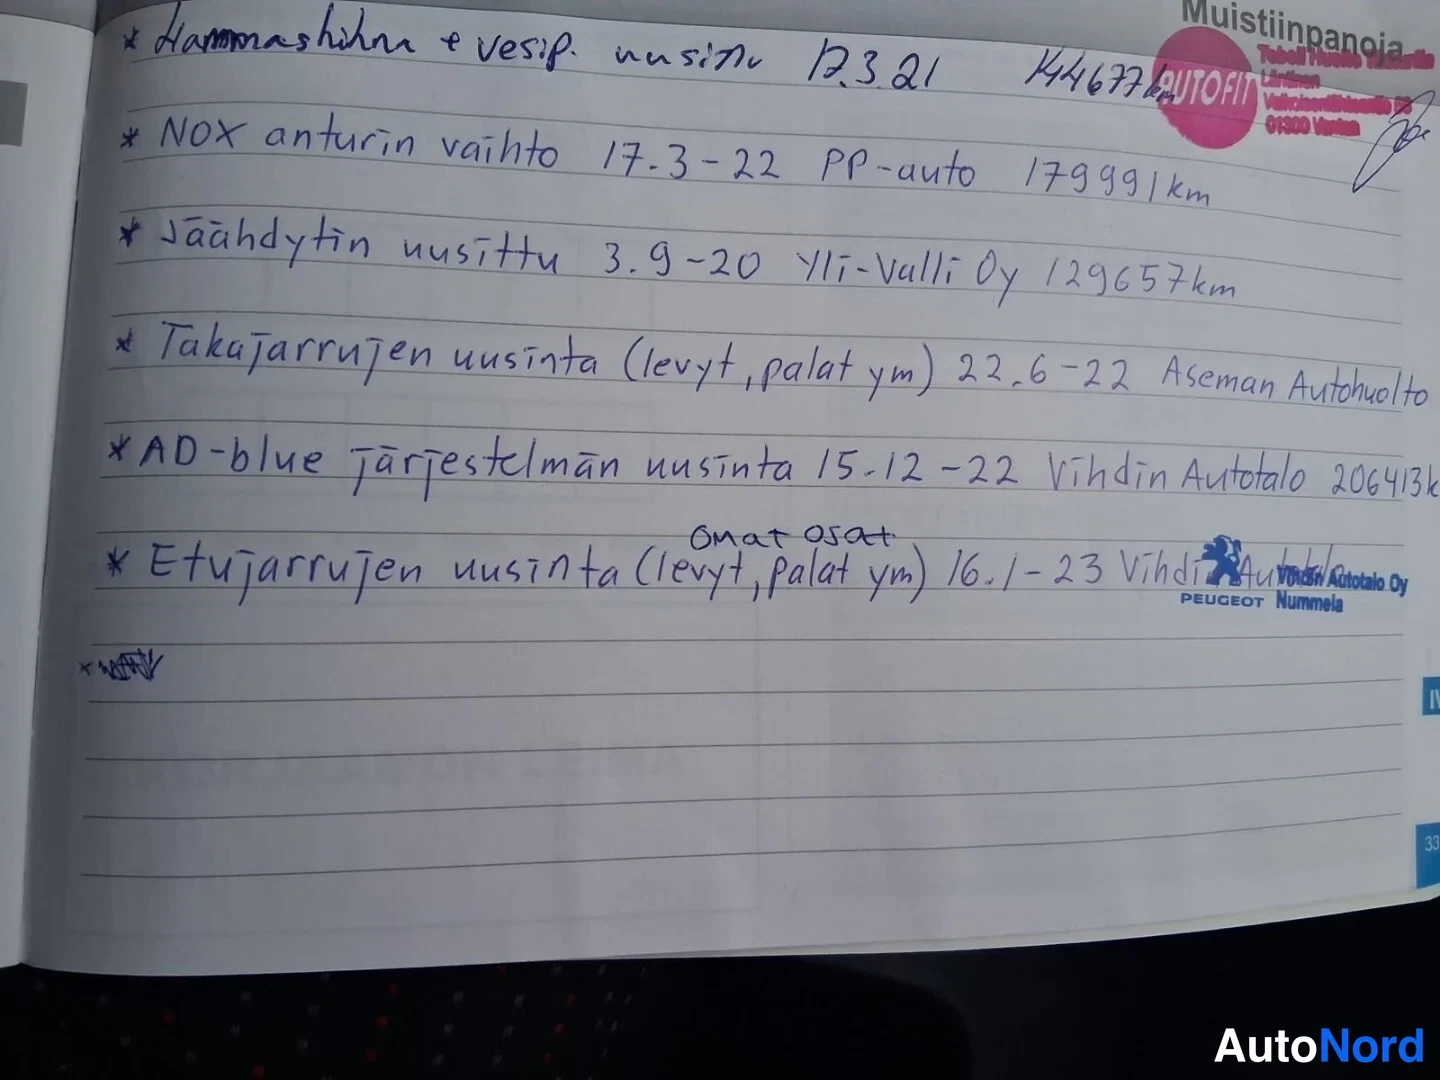 Muistiinpanoja
* Hammashihna + vesip. uusittu 12.3.21 144677km
AUTOFIT
01300 Vantaa
* NOX anturin vaihto 17.3-22 PP-auto 179991km
* Jäähdytin uusittu 3.9-20 Yli-Valli Oy 129657km
* Takajarrujen uusinta (levyt, palat ym) 22.6-22 Aseman Autohuolto
* AD-blue järjestelmän uusinta 15.12-22 Vihdin Autotalo 206413k
omat osat
* Etujarrujen uusinta (levyt, palat ym) 16.1-23 Vihdin Autotalo
Vihdin Autotalo Oy
PEUGEOT Nummela
IV
33
AutoNord